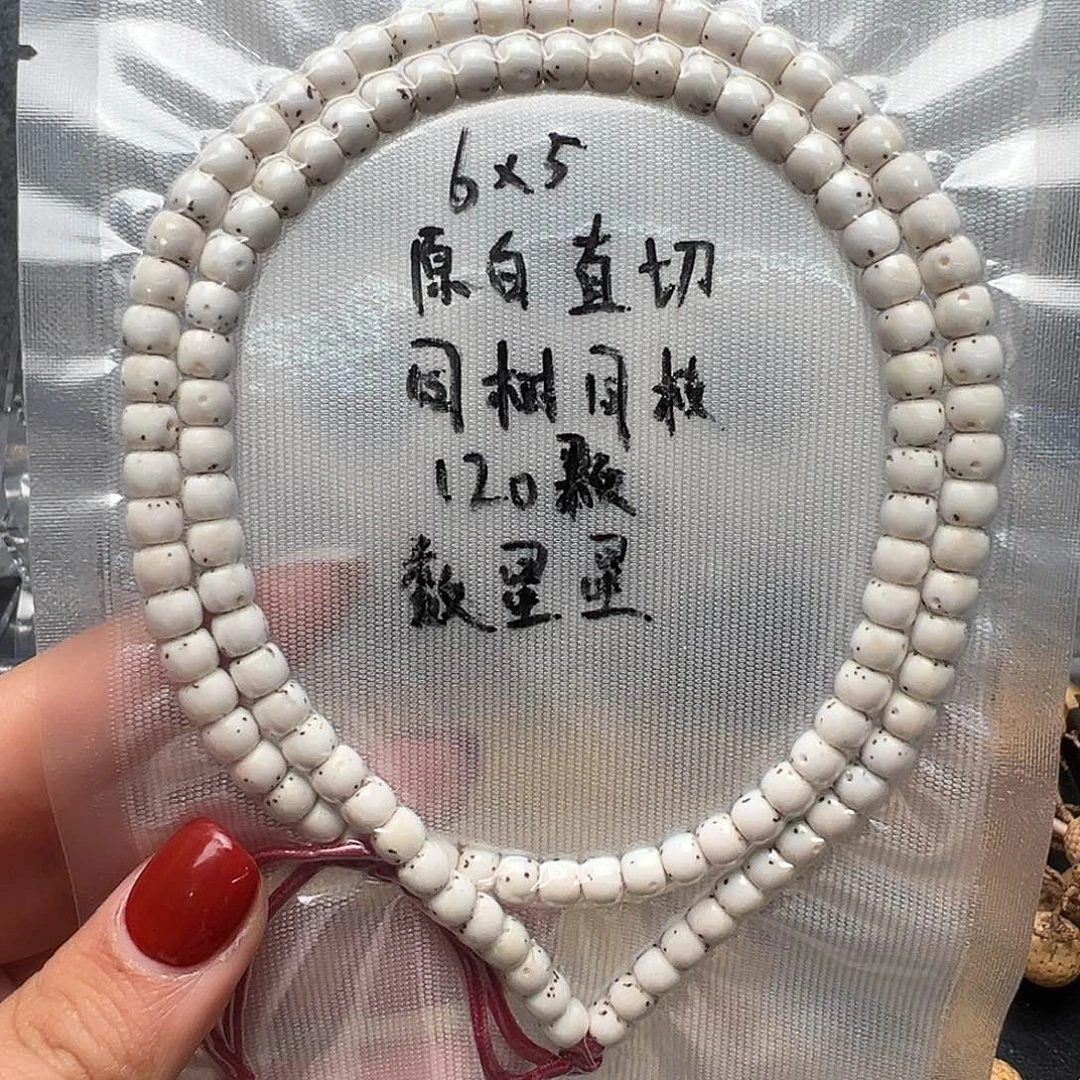 6x5
原白直切
同树同枝
120颗
数星星